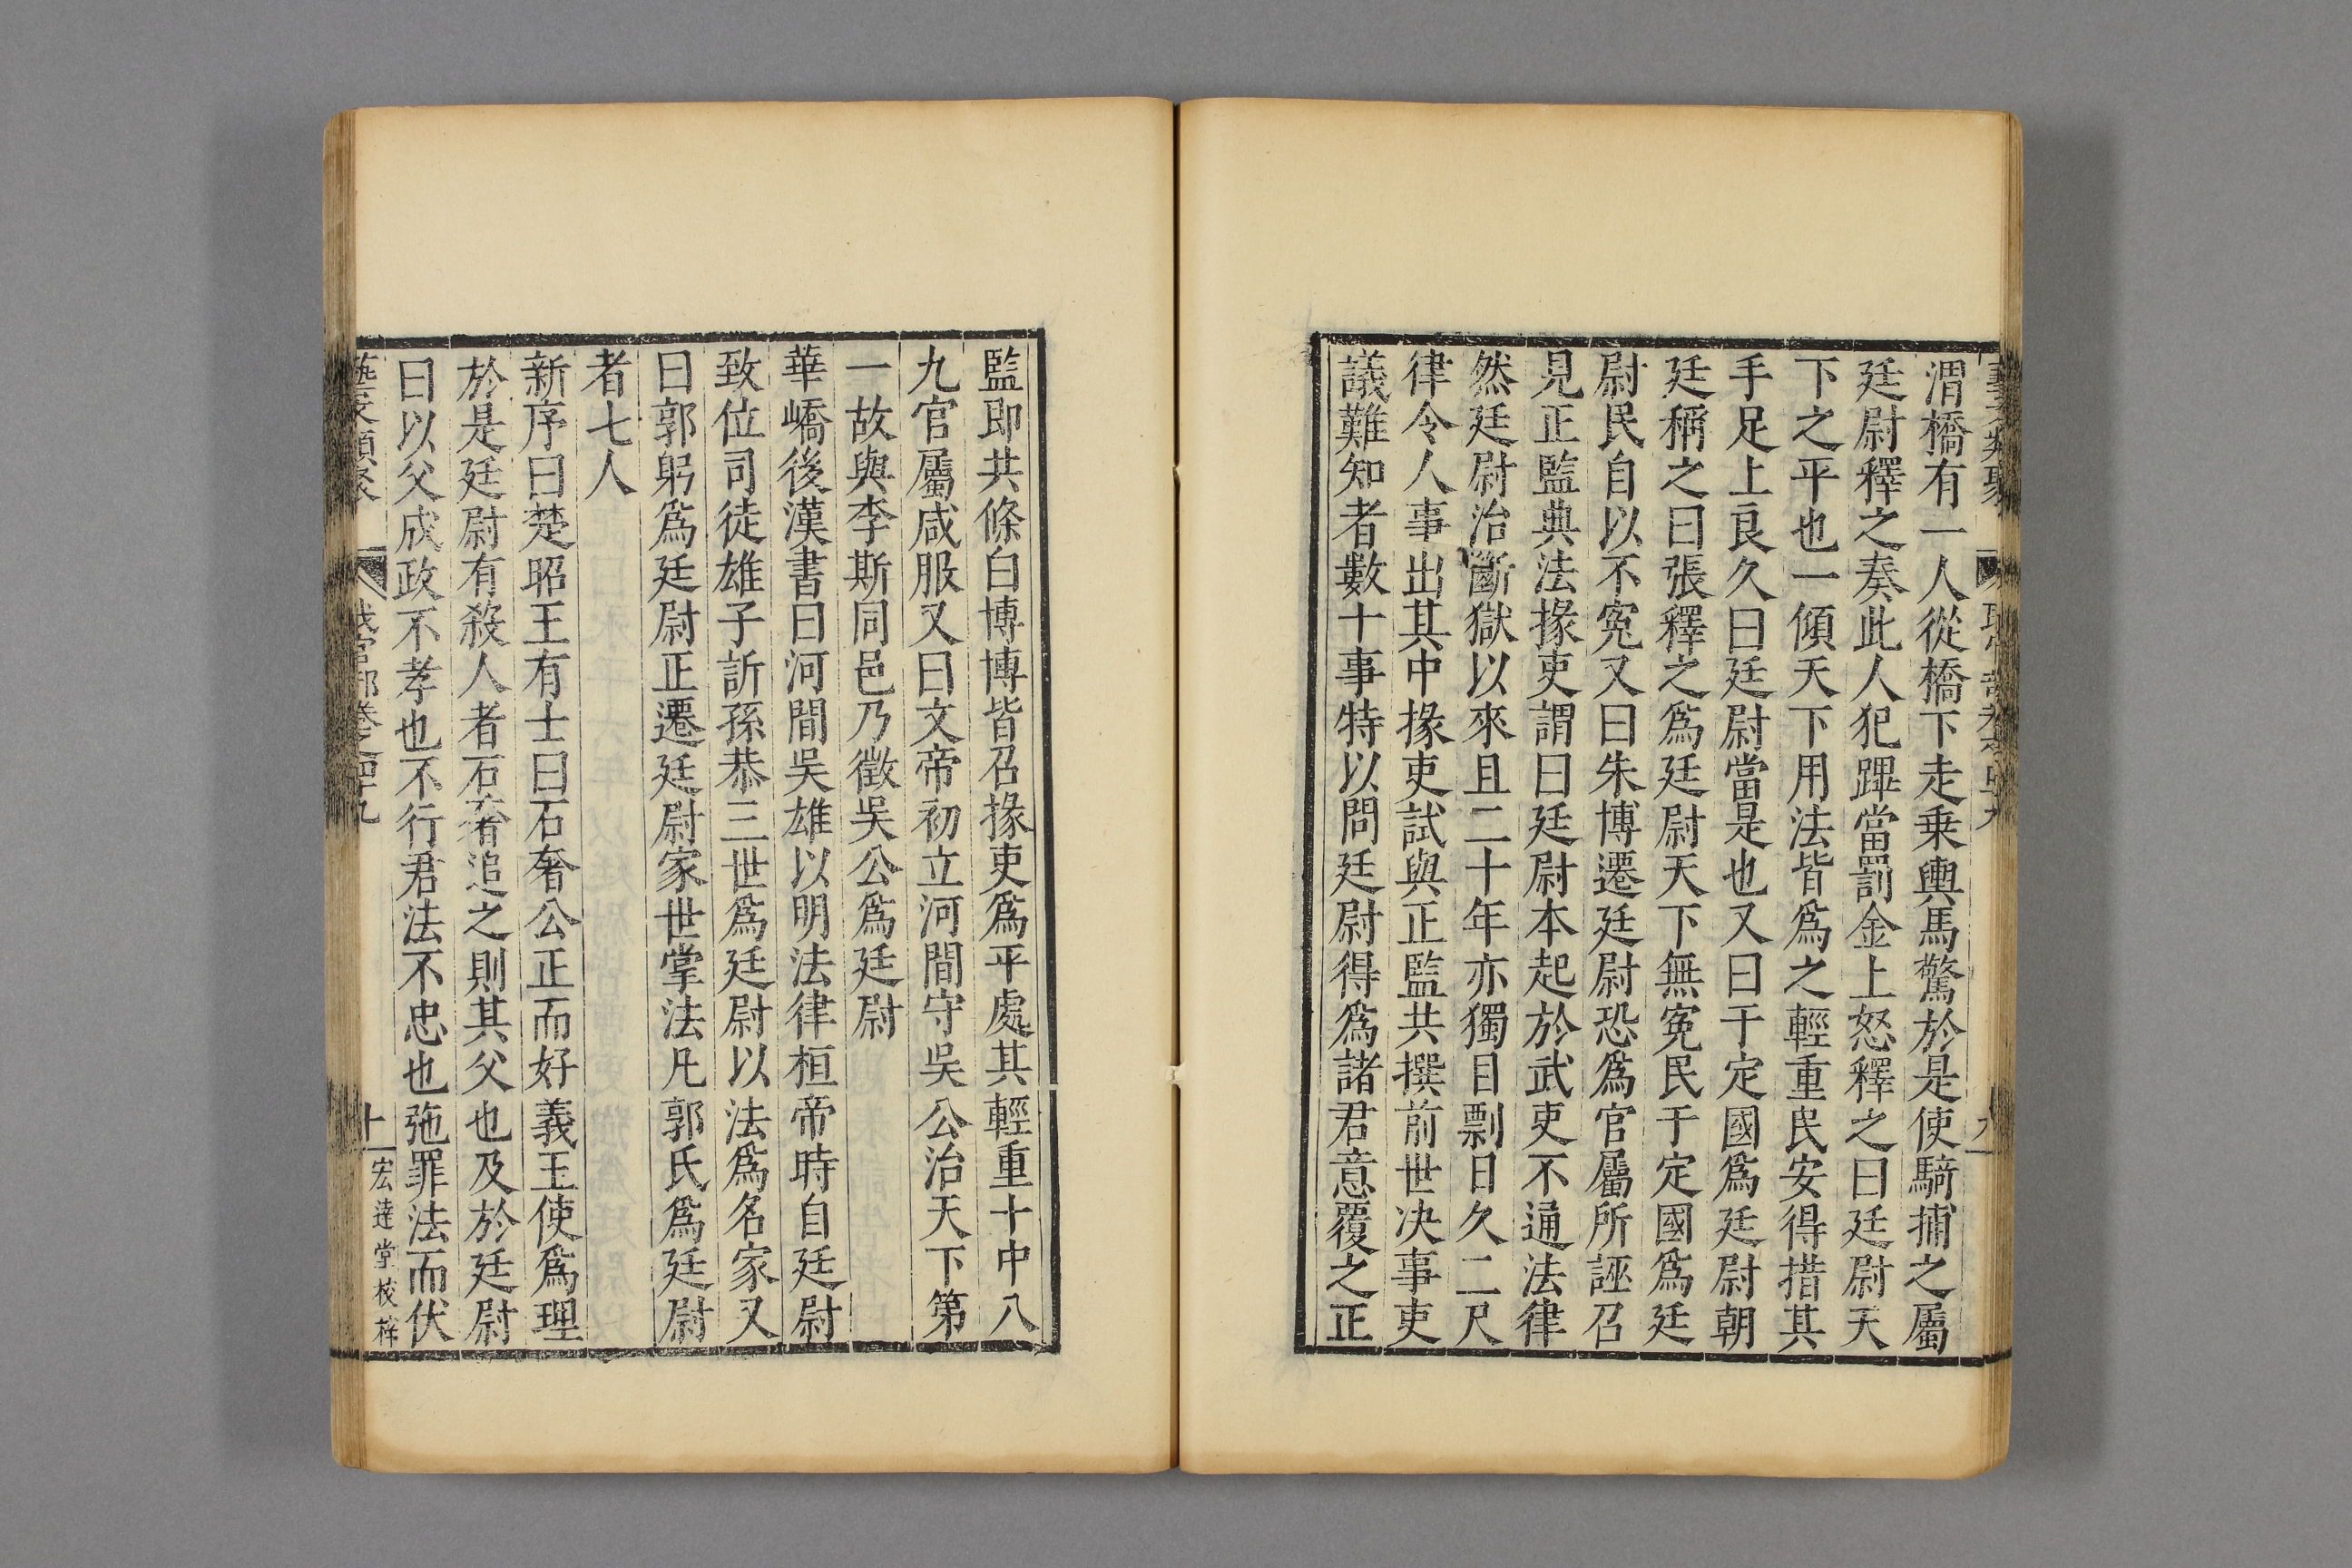 渭橋有一人從橋下走乗輿馬驚於是使騎捕之屬
廷尉釋之奏此人犯蹕當罰金上怒釋之曰廷尉天
下之平也一傾天下用法皆爲之輕重民安得措其
手足上良久曰廷尉當是也又曰于定國爲廷尉朝
廷稱之曰張釋之爲廷尉天下無冤民于定國爲廷
尉民自以不寃又曰朱博遷廷尉恐爲官屬所誣召
見正監典法掾吏謂曰廷尉本起於武吏不通法律
然廷尉治斷獄以來且二十年亦獨目剽日久二尺
律令人事出其中掾吏試與正監共撰前世决事吏
議難知者數十事特以問廷尉得爲諸君意覆之正
監即共條白博博皆召掾吏爲平處其輕重十中八
九官屬咸服又曰文帝初立河間守吳公治天下第
一故與李斯同邑乃徵吳公爲廷尉
華嶠後漢書曰河間吳雄以明法律桓帝時自廷尉
致位司徒雄子訢孫恭三世爲廷尉以法爲名家又
曰郭躬爲廷尉正遷廷尉家世掌法凡郭氏爲廷尉
者七人
新序曰楚昭王有士曰石奢公正而好義王使爲理
於是廷尉有殺人者石奢追之則其父也及於廷尉
曰以父成政不孝也不行君法不忠也弛罪法而伏
藝文類聚 職官部卷之四十九 十 宏逹堂校梓